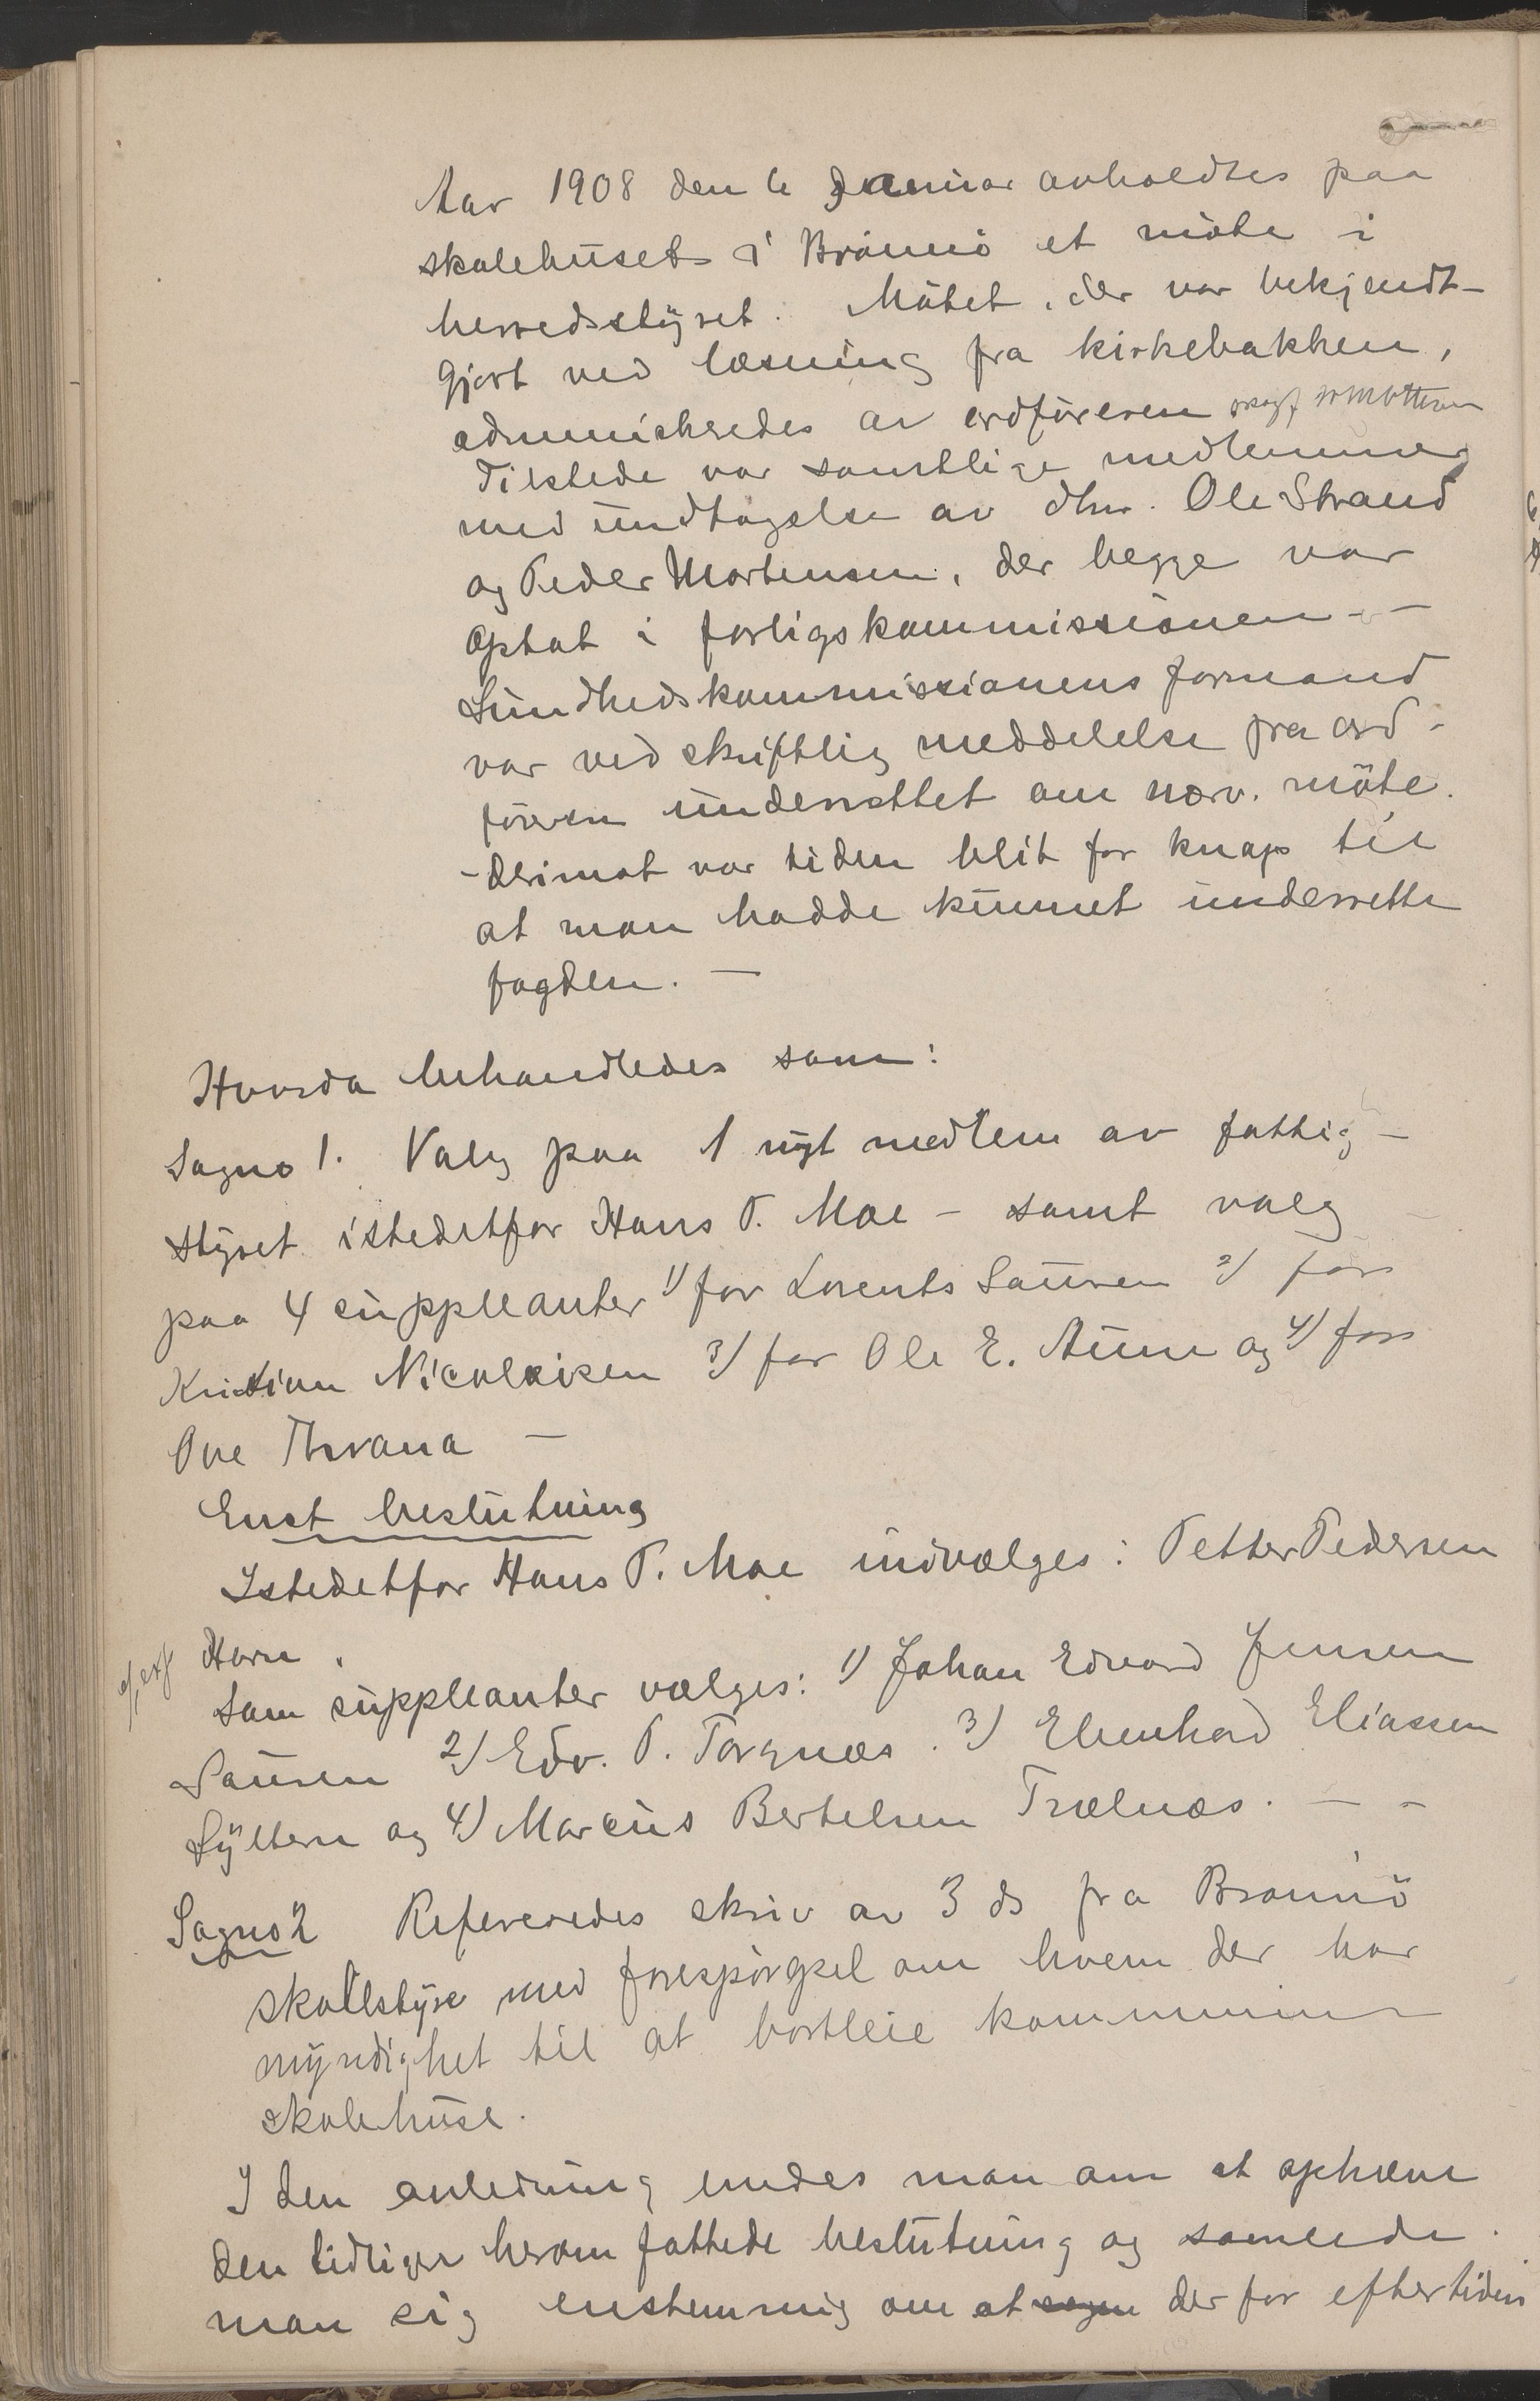 Aar 1908 den 6 Januar avholdtes paa
skolehuset i Brönnö et möte i
herredsstyret. Mötet, der var bekjendt-
gjort ved læsning fra kirkebakken,
administredes av ordföreren
Tilstede var samtlige medlemmer
med undtagelse av dhrr. Ole Strand
og Peder Mortensen, der begge var
optat i forligskommissionen -
Sundhedskommissionens formand
var ved skriftlig meddelelse fra ord-
föreren underrettet om nærv. möte.
- derimot var tiden blit for knap til
at man hadde kunnet underrette
fogden. -
Hvorda behandledes som:
Sagno 1. Valg paa 1 nyt medlem av fattig-
styret istedetfor Hans P. Moe - samt valg
paa 4 suppleanter 1/ for Lorents Sauren 2/ for
Kristian Nicolaisen 3/ for Ole E. Aune og 4/ for
Ove Thrana -
Enst beslutning
Istedetfor Hans P. Moe indvælges: Petter Pedersen
Horn.
Som suppleanter vælges: 1/ Johan Edvard Jensen
Sauren 2/ Edv. P. Torgnæs. 3/ Ebenhard Eliassen
Syltern og 4/ Marcus Bertelsen Trælnæs. - -
Sagno 2 Refereredes skriv av 3 ds fra Brönnö
skolestyre med forespörgsel om hvem der har
myndighet til at bortleie kommunens
skolehuse.
I den anledning enedes man om at ophæve
den tidligere herom fattede beslutning og samlede
man sig enstemmig om at sagen der for eftertiden